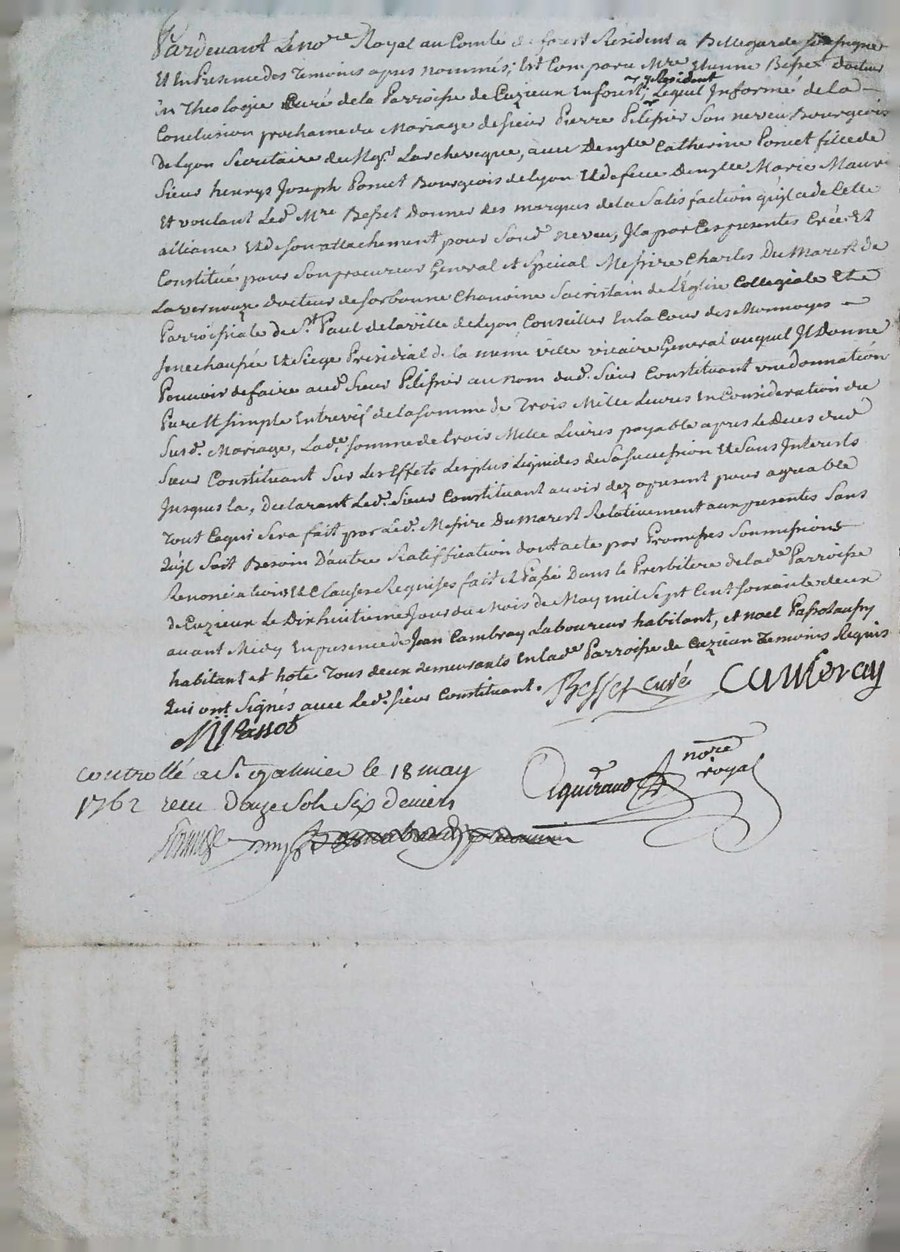 Pardevant Le no.re Royal au Comté de forest Résident a Bellegarde soussigné
Et En Presence des Temoins apres nommés; Est Comparu M.re Etienne Besset docteur
in Theologie Curé de la Parroisse de Cuzieux En forest, y Résidant Lequel Informé de la
Conclusion prochaine du Mariage de sieur Pierre Pelissier Son neveu Bourgeois
de Lyon Secretaire de Mg.r Larcheveque, avec Dem.lle Catherine Poncet fille de
Sieur henrys Joseph Poncet Bourgeois de Lyon Et de feue Dem.lle Marie
Et voulant Led.t M.re Besset Donner des marques de la Satisfaction quil a de Cette
alliance Et de Son attachement pour Sond.t neveu, Il a par Ces presentes Créé Et
Constitué pour Son procureur General et Spécial Messire Charles Du Marest de
La vernouze docteur de Sorbonne Chanoine Sacristain de L'Eglise Collegiale Et
Parroissiale de S.t Paul de la ville de Lyon Conseiller En la Cour des Monnoyes
Senechaussée Et Siege Présidial de la meme ville vicaire General auquel Il Donne
Pouvoir de faire aud.t Sieur Pelissier au nom dud.t Sieur Constituant une donnation
Pure Et Simple Entrevifs de la Somme de Trois Mille Livres En Considération du
Susd.t Mariage, Lad.e Somme de trois Mille Livres payable apres Le Deces dud.t
Sieur Constituant Sur Les Effets Les plus Liquides de Sa Succession Et Sans Interests
Jusques la, Declarant Led.t Sieur Constituant avoir dez apresent pour agreable
Tout Ce qui Sera fait par Led.t Messire Du Marest Relativement aux presentes Sans
Quil Soit Besoin D'autre Ratiffication dont acte par Promesses Soumissions
Renonciations Et Clauses Requises fait Et Passé Dans le Presbitere de lad.e Parroisse
de Cuzieux Le Dixhuitieme Jour du Mois de May mil Sept Cent Soixante deux
avant Midy En presence de Jean Cambray Laboureur habitant, et noel
habitant et hote Tous deux demeurants En lad.e Parroisse de Cuzieux Temoins Requis
Qui ont Signés avec Led.t Sieur Constituant.
Besset curé Cambray
Passot
Controllé a S.t galmier le 18 may
1762 recu Douze Sols Six deniers
guiraud no.re royal